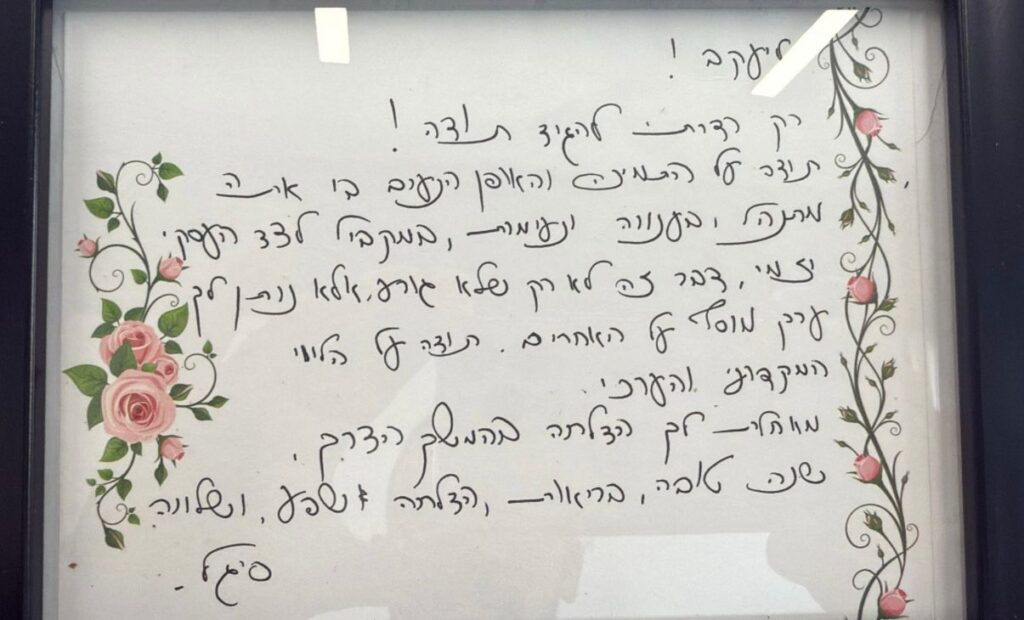 ליעקב !
רק רציתי להגיד תודה !
תודה על התמיכה והאופן הנעים בו אתה
מתנהל, בענווה ונעימות, במקביל לצד העסקי
יזמי, דבר זה לא רק שלא גורע, אלא נותן לך
ערך מוסף על האחרים. תודה על הליווי
המקצועי והערכי.
מאחלת לך הצלחה בהמשך הדרך,
שנה טובה, בריאות, הצלחה ושפע, ושלווה
סיגל.